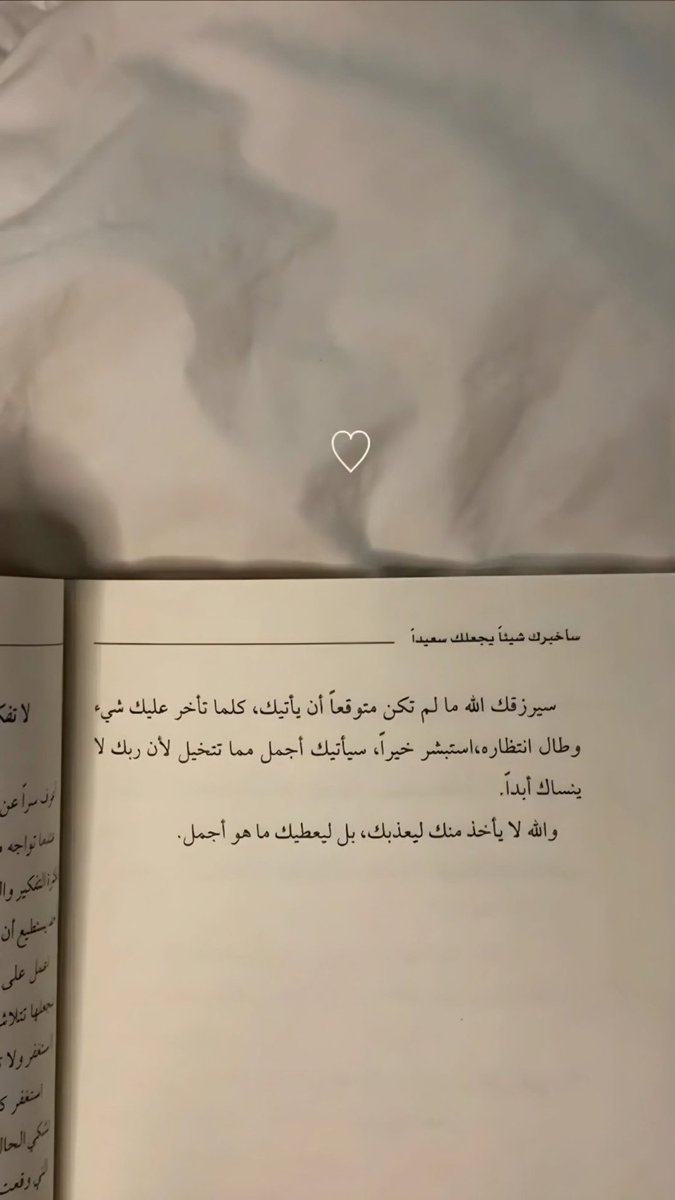 سأخبرك شيئاً يجعلك سعيداً
سيرزقك الله ما لم تكن متوقعاً أن يأتيك، كلما تأخر عليك شيء
وطال انتظاره،استبشر خيراً، سيأتيك أجمل مما تتخيل لأن ربك لا
ينساك أبداً.
والله لا يأخذ منك ليعذبك، بل ليعطيك ما هو أجمل.
لا
سراً عن
تواجه
التفكير
يستطيع أن
على
استغفر ولا
استغفر
وقعت